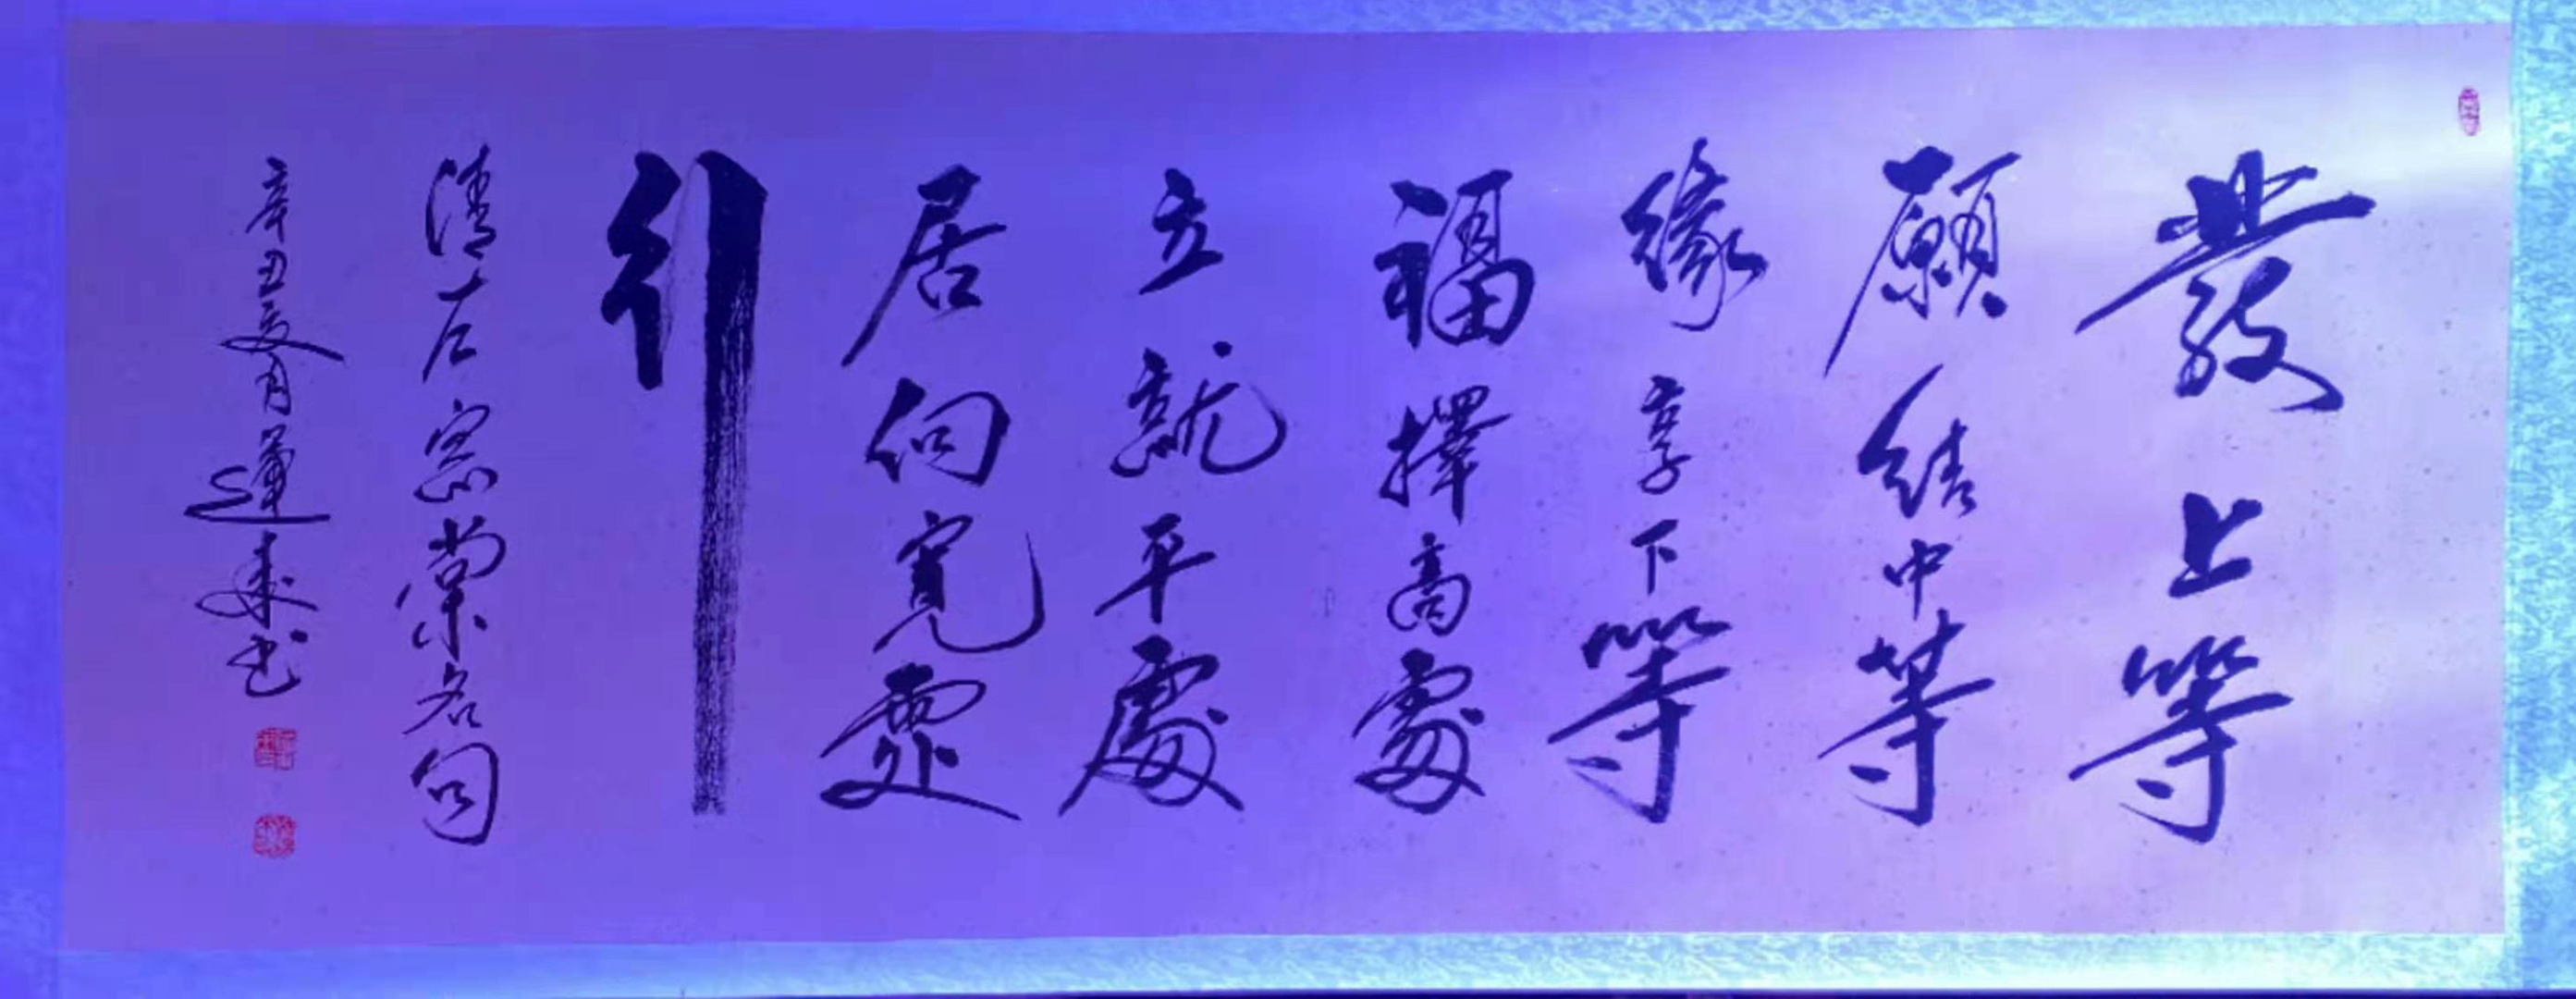 發上等
願結中等
緣享下等
福擇高處
立就平處
居向寬處
行
清左宗棠名句
辛丑夏月蓮來书